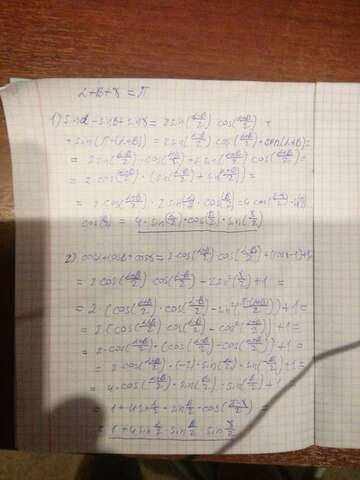 α+β+γ = π
1) sinα - sinβ + sinγ = 2sin(α-β/2) cos(α+β/2) +
+ sin(π-(α+β)) = 2sin(α-β/2) cos(α+β/2) + sin(α+β) =
= 2sin(α-β/2)·cos(α+β/2) + 2sin(α+β/2) cos(α+β/2) =
= 2·cos(α+β/2)·(sin(α-β/2) + sin(α+β/2)) =
= 2·cos(α+β/2)·2·sin(α/2)·cos(β/2) = 4·cos(π-γ/2)·
cos(β/2) = 4·sin(α/2)·cos(β/2)·sin(γ/2)
2) cosα + cosβ + cosγ = 2·cos(α+β/2)·cos(α-β/2) + (cosγ-1)+1 =
= 2cos(α+β/2)·cos(α-β/2) - 2sin²(γ/2) + 1 =
= 2·(cos(α+β/2)·cos(α-β/2) - sin²(π-(α+β)/2)) + 1 =
= 2(cos(α+β/2) cos(α-β/2) - cos²(α+β/2)) + 1 =
= 2·cos(α+β/2)·(cos(α-β/2) - cos(α+β/2)) + 1 =
= 2cos(α+β/2)·(-2)·sin(α/2)·sin(-β/2) + 1 =
= 4·cos(α+β/2)·sin(α/2)·sin(β/2) + 1 =
= 1 + 4sin α/2·sin β/2·cos(π-γ/2) =
= 1 + 4sin α/2 sin β/2 sin γ/2